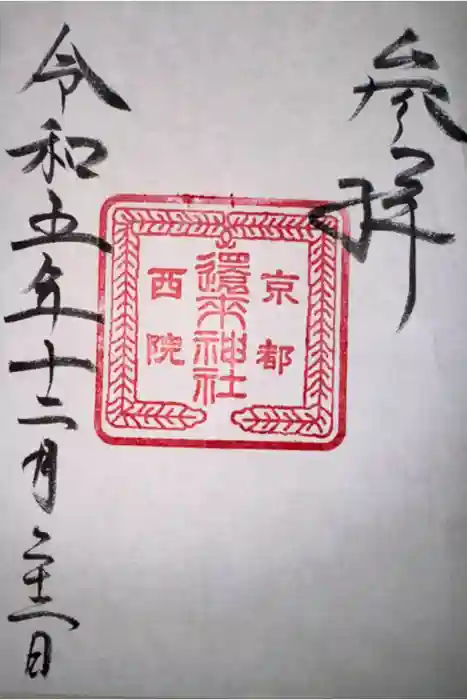 参拝
京都
還来神社
西院
令和五年十二月二十二日